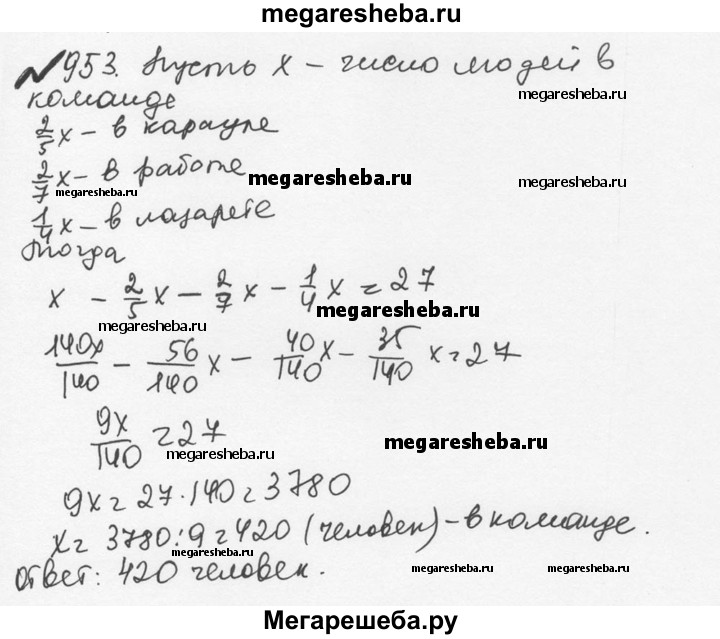 megaresheba.ru
№953. Пусть x – число людей в
команде
megaresheba.ru
2/5 x – в карауле
2/7 x – в работе
megaresheba.ru
megaresheba.ru
megaresheba.ru
1/4 x – в лазарете
тогда
x - 2/5 x - 2/7 x - 1/4 x = 27
megaresheba.ru
megaresheba.ru
140x/140 - 56/140 x - 40/140 x - 35/140 x = 27
9x/140 = 27
megaresheba.ru
megaresheba.ru
9x = 27·140 = 3780
x = 3780:9 = 420 (человек) – в команде.
megaresheba.ru
ответ: 420 человек.
megaresheba.ru
megaresheba.ru
Мегарешеба.ру